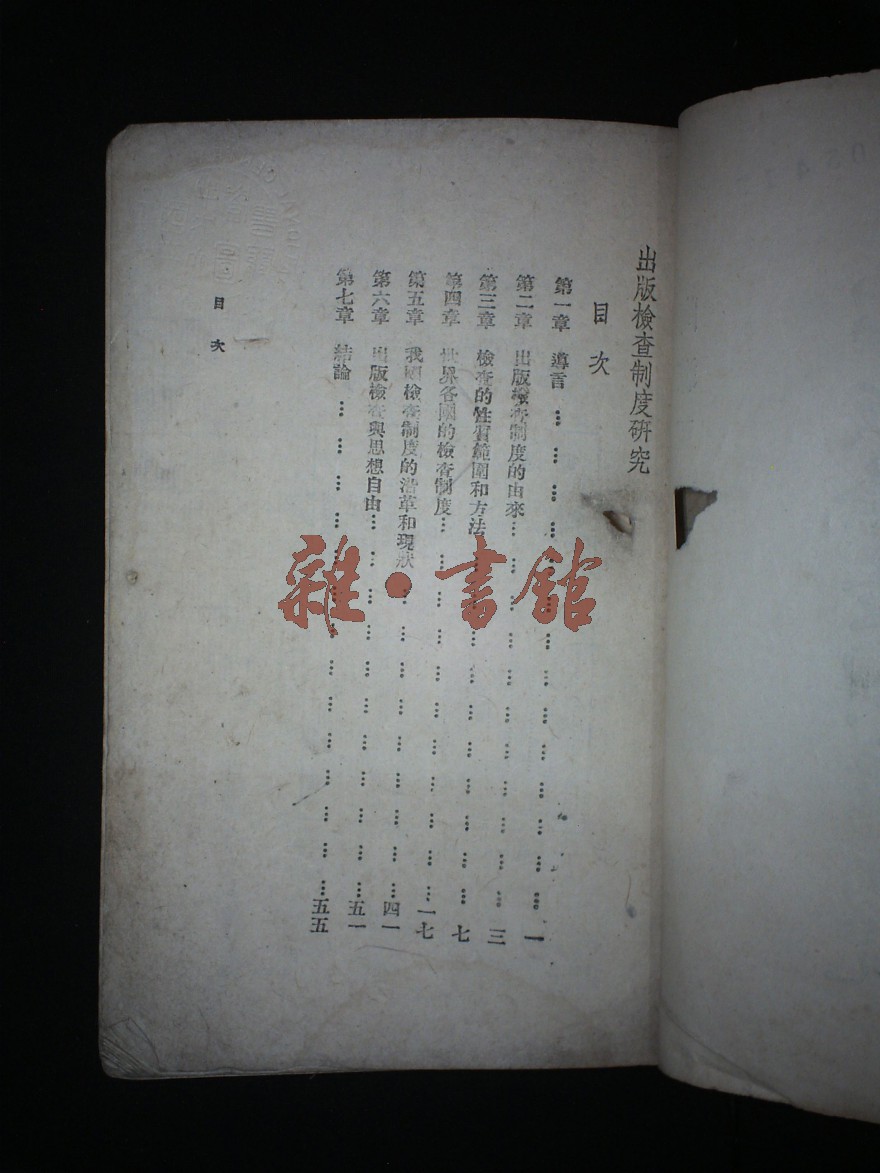 出版檢查制度研究
目次
第一章 導言…………………………………一
第二章 出版檢查制度的由來…………………………………三
第三章 檢查的性質範圍和方法…………………………………七
第四章 世界各國的檢查制度…………………………………一七
第五章 我國檢查制度的沿革和現狀…………………………………四一
第六章 出版檢查與思想自由…………………………………五一
第七章 結論…………………………………五五
目次
雜·書館